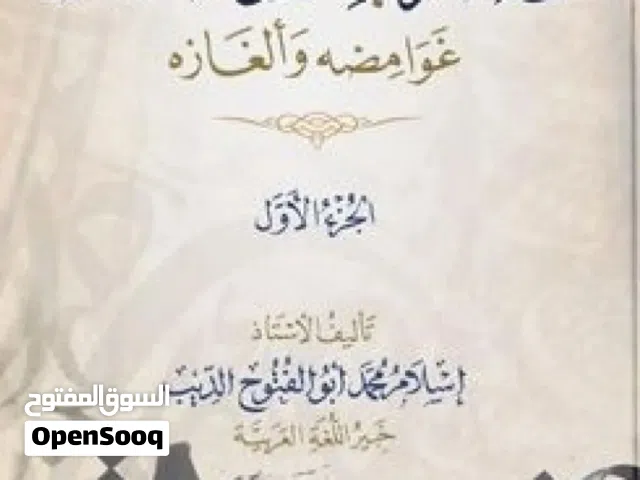 غوامضه وألغازه
الجزء الأول
تأليف الأستاذ
إسلام محمد أبو الفتوح الديب
خبير اللغة العربية
السوق المفتوح
OpenSooq